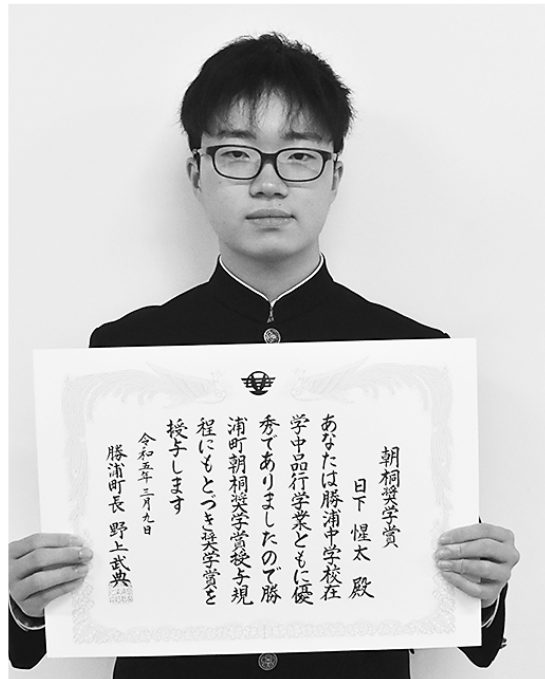 朝桐奨学賞
日下 惺太 殿
あなたは勝浦中学校在
学中品行学業ともに優
秀でありましたので勝
浦町朝桐奨学賞授与規
程にもとづき奨学賞を
授与します
令和五年三月九日
勝浦町長 野上武典